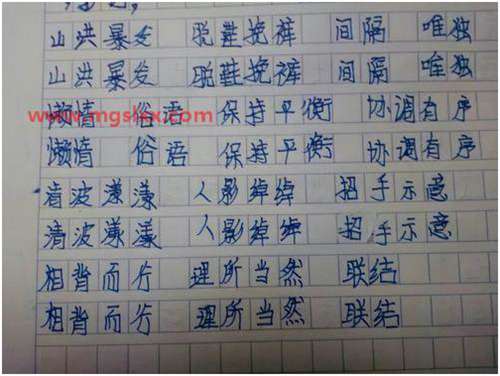 山洪暴发 脱鞋挽裤 间隔 唯独
山洪暴发 脱鞋挽裤 间隔 唯独
懒惰 俗语 保持平衡 协调有序
www.mgslsx.com
懒惰 俗语 保持平衡 协调有序
清波漾漾 人影绰绰 招手示意
清波漾漾 人影绰绰 招手示意
相背而行 理所当然 联结
相背而行 理所当然 联结